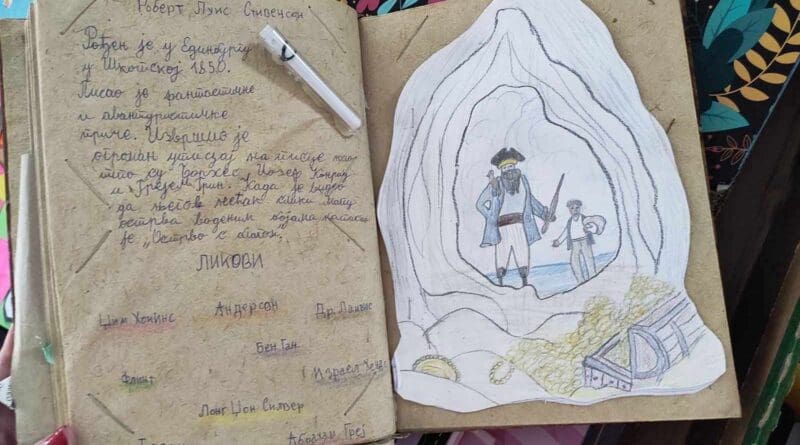 Роберт Луис Стивенсон
Рођен је у Единбургу
у Шкотској 1850.
Писао је фантастичне
и авантуристичке
приче. Извршио је
огроман утисај на писце као
што су Борхес, Јозеф Конрад
и Грејем Грин. Када је видео
да његов нећак слики мапу
острва воденим бојама написао
је „Острво с благом".
ЛИКОВИ
Џим Хокинс Андерсон Др. Ливси
Бен Ган
Флинт Израел Хендс
Лонг Џон Силвер
Абрахам Греј